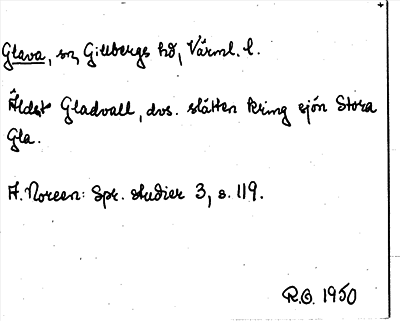 Glava, sn, Gillbergs hd, Värml. l.
Äldst Gladvall, dvs. slätten kring sjön Stora
Gla.
A. Noreen: Spr. studier 3, s. 119.
R.O. 1950